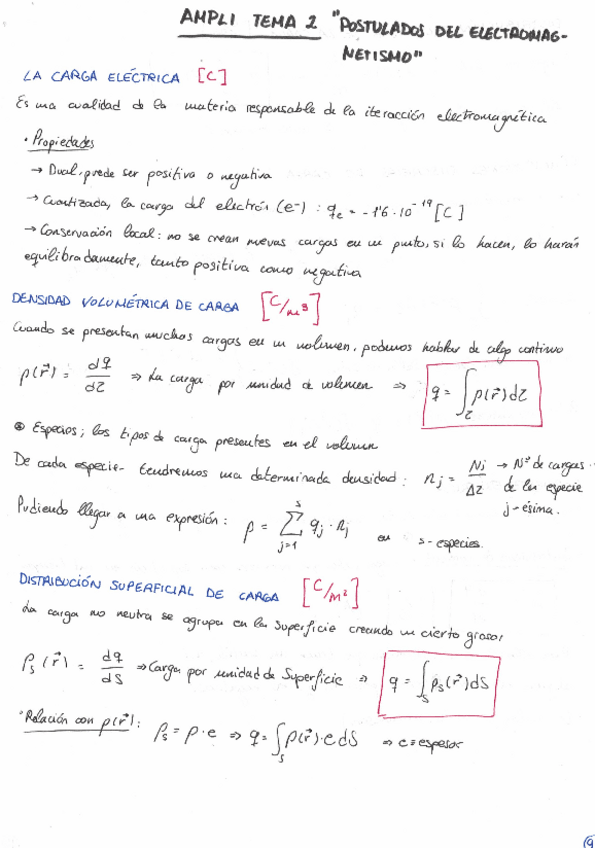 AMPLI TEMA 2 "POSTULADOS DEL ELECTROMAG-
NETISMO"
LA CARGA ELÉCTRICA [C]
Es una cualidad de la materia responsable de la iteracción electromagnética
· Propiedades
→ Dual, puede ser positiva o negativa
→ Cuantizada, la carga del electrón (e⁻) : qe = -1'6·10⁻¹⁹ [C]
→ Conservación local: no se crean nuevas cargas en un punto, si lo hacen, lo harán
equilibradamente, tanto positiva como negativa
DENSIDAD VOLUMÉTRICA DE CARGA [C/m³]
Cuando se presentan muchas cargas en un volumen, podemos hablar de algo continuo
ρ(r⃗) = dq/dτ ⇒ La carga por unidad de volumen ⇒ q = ∫τ ρ(r⃗)dτ
⊛ Especies; los tipos de carga presentes en el volumen
De cada especie- tendremos una determinada densidad: nj = Nj/Δτ → Nº de cargas
de la especie
j-ésima.
Pudiendo llegar a una expresión: ρ = Σ(j=1, s) qj · nj en s-especies.
DISTRIBUCIÓN SUPERFICIAL DE CARGA [C/m²]
La carga no neutra se agrupa en la superficie creando un cierto grosor
ρs(r⃗) = dq/dS ⇒ Carga por unidad de superficie ⇒ q = ∫s ρs(r⃗)dS
· Relación con ρ(r⃗): ρs = ρ·e ⇒ q = ∫s ρ(r⃗)·e dS ⇒ e = espesor
9